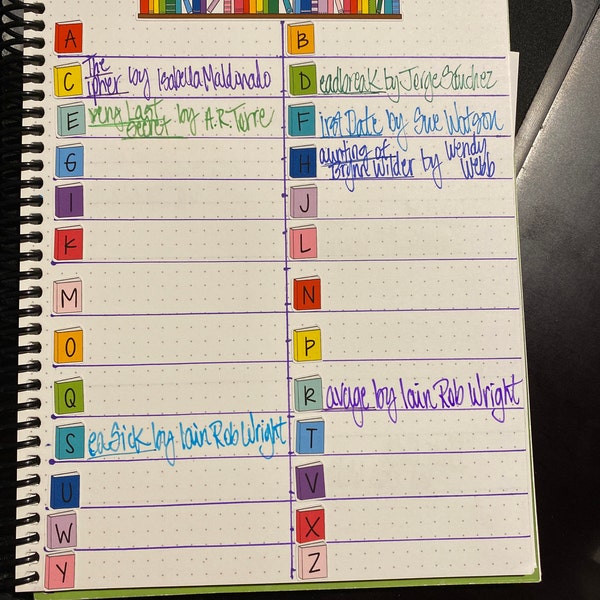 A
B
The
C ipher by Isabella Maldonado
D eadbreak by Jorge
E very Last
Secret by A.R. Torre
F irst Date by Sue Watson
G
H aunting of
Brynn Wilder by Wendy
Webb
I
J
K
L
M
N
O
P
Q
R avage by Iain Rob Wright
S ea Sick by Iain Rob Wright
T
U
V
W
X
Y
Z